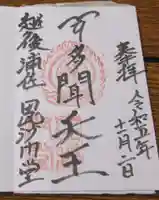 奉拝
令和五年
十一月二日
多聞天王
越後浦佐
毘沙門堂